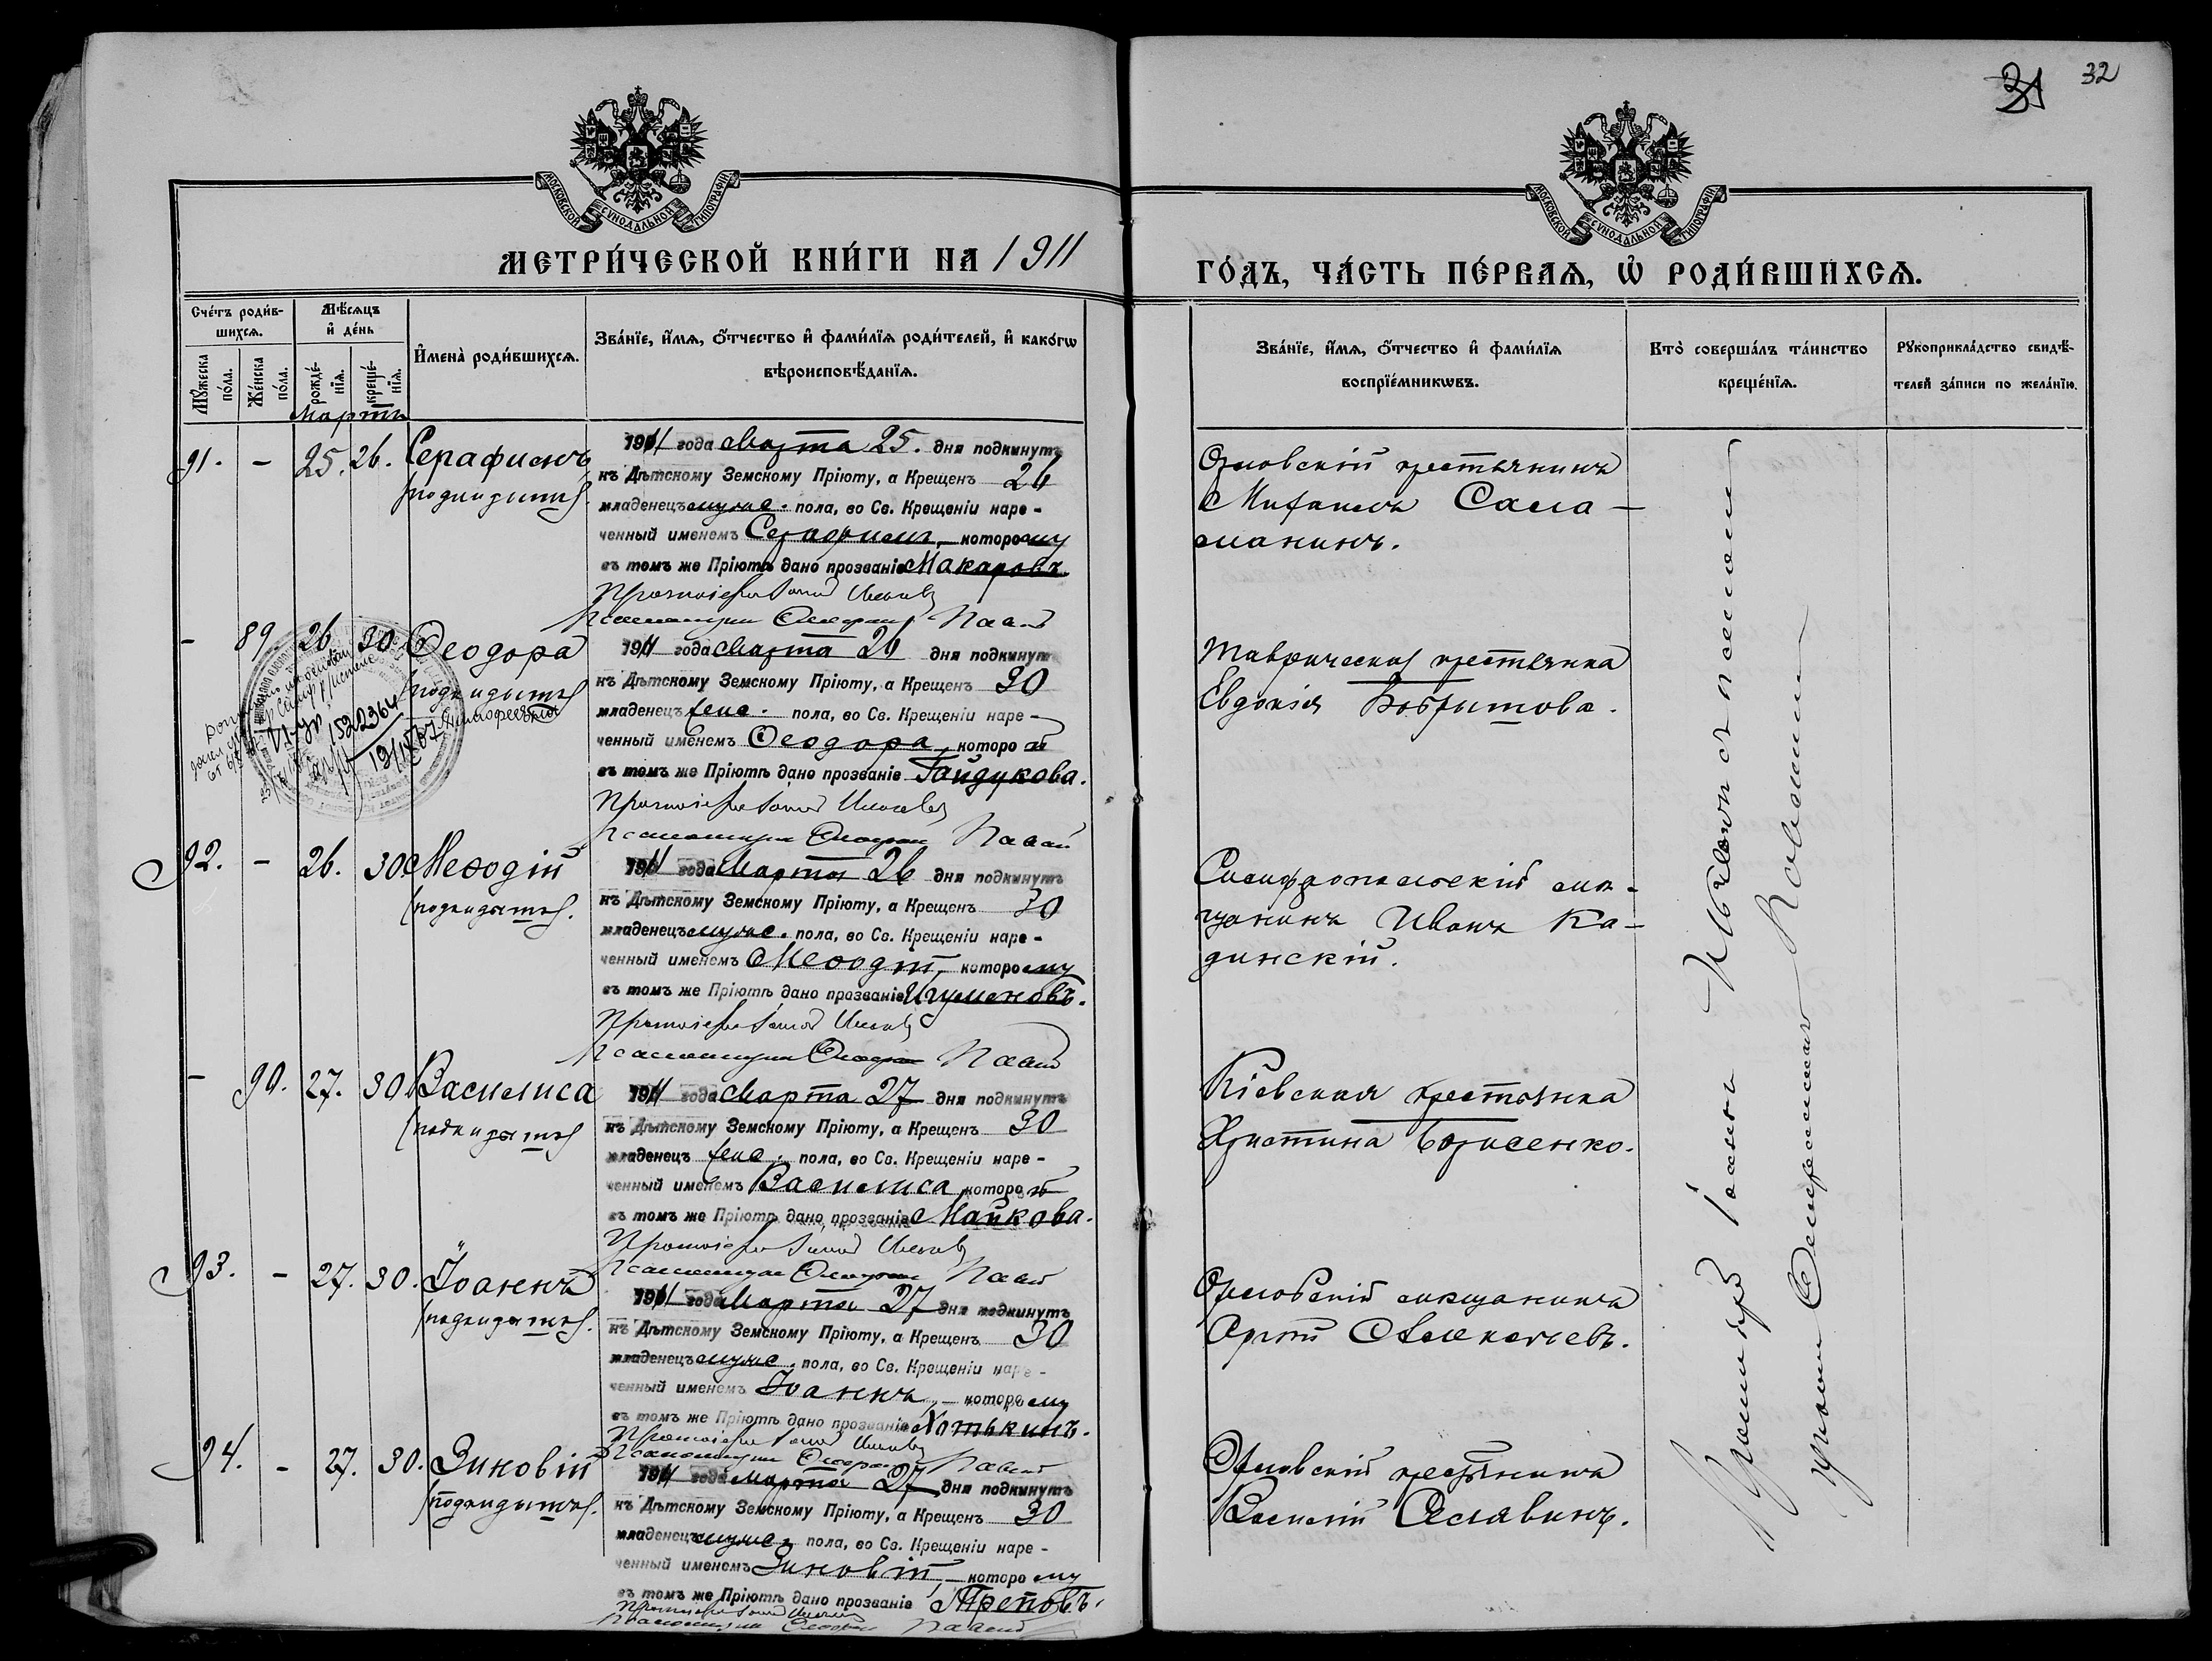 32
МОСКОВСКОЙ СѴНОДАЛЬНОЙ ТИПОГРАФІИ
МОСКОВСКОЙ СѴНОДАЛЬНОЙ ТИПОГРАФІИ
МЕТРИ́ЧЕСКОЙ КНИ́ГИ НА 1911
ГО́ДЪ, ЧА́СТЬ ПЕ́РВАЯ, Ѡ҆ РОДИ́ВШИХСЯ.
Сче́тъ роди́в-
шихся.
Мѣ́сяцъ
и҆ де́нь
Мꙋ́жеска
по́ла.
Же́нска
по́ла.
рожде́-
нїя.
креще́-
нїя.
И҆мена̀ роди́вшихся.
Зва́нїе, и҆́мя, ѻ҆́тчество и҆ фами́лїя роди́телей, и҆ како́гѡ
вѣроисповѣ́данїя.
Зва́нїе, и҆́мя, ѻ҆́тчество и҆ фами́лїя
воспрїе́мникѡвъ.
Кто̀ соверша́лъ та́инство
креще́нїя.
Рꙋкоприкла́дство свидѣ́-
телей за́писи по жела́нїю.
Мартъ
91. - 25. 26. Серафимъ
(подкидышъ).
1911 года Марта 25. дня подкинутъ
къ Дѣтскому Земскому Пріюту, а Крещенъ 26
младенецъ муж. пола, во Св. Крещеніи наре-
ченный именемъ Серафимъ, которому
въ томъ же Пріютѣ дано прозваніе Макаровъ.
Протоіерей Іоаннъ
Псаломщикъ
Орловскій крестьянинъ
Михаилъ Сала-
манинъ.
- 89. 26. 30 Ѳеодора
(подкидышъ)
1911 года Марта 26 дня подкинутъ
къ Дѣтскому Земскому Пріюту, а Крещенъ 30
младенецъ жен. пола, во Св. Крещеніи наре-
ченный именемъ Ѳеодора, которой
въ томъ же Пріютѣ дано прозваніе Гайдукова.
Протоіерей Іоаннъ
Псаломщикъ
Таврическая крестьянка
Евдокія Бобрышова.
1522364
92. - 26. 30 Меѳодій
(подкидышъ).
1911 года Марта 26 дня подкинутъ
къ Дѣтскому Земскому Пріюту, а Крещенъ 30
младенецъ муж. пола, во Св. Крещеніи наре-
ченный именемъ Меѳодій, которому
въ томъ же Пріютѣ дано прозваніе Игуменовъ.
Протоіерей Іоаннъ
Псаломщикъ
Симферопольскій мѣ-
щанинъ Иванъ Ка-
динскій.
- 90. 27. 30 Василиса
(подкидышъ)
1911 года Марта 27 дня подкинутъ
къ Дѣтскому Земскому Пріюту, а Крещенъ 30
младенецъ жен. пола, во Св. Крещеніи наре-
ченный именемъ Василиса которой
въ томъ же Пріютѣ дано прозваніе Майкова.
Протоіерей Іоаннъ
Псаломщикъ
Кіевская крестьянка
Христина Борисенко.
93. - 27. 30. Іоаннъ
(подкидышъ).
1911 года Марта 27 дня подкинутъ
къ Дѣтскому Земскому Пріюту, а Крещенъ 30
младенецъ муж. пола, во Св. Крещеніи наре-
ченный именемъ Іоаннъ, которому
въ томъ же Пріютѣ дано прозваніе Хотькинъ.
Протоіерей Іоаннъ
Псаломщикъ
Орловскій мѣщанинъ
94. - 27. 30. Зиновій
(подкидышъ).
1911 года Марта 27 дня подкинутъ
къ Дѣтскому Земскому Пріюту, а Крещенъ 30
младенецъ муж. пола, во Св. Крещеніи наре-
ченный именемъ Зиновій которому
въ томъ же Пріютѣ дано прозваніе Треповъ.
Протоіерей Іоаннъ
Псаломщикъ
Орловскій крестьянинъ
Василій Славинъ.
Іоаннъ съ псаломщи